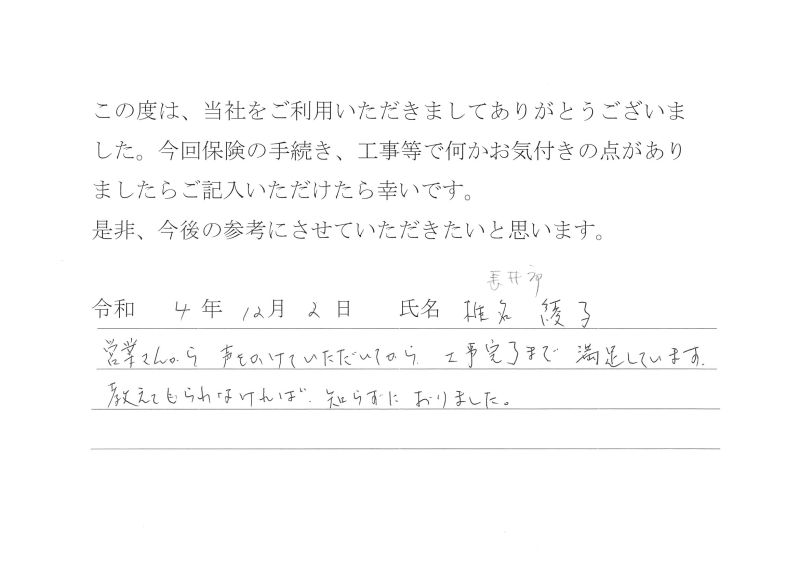 この度は、当社をご利用いただきましてありがとうございま
した。今回保険の手続き、工事等で何かお気付きの点があり
ましたらご記入いただけたら幸いです。
是非、今後の参考にさせていただきたいと思います。
長井市
令和 4年 12月 2日 氏名 椎名 綾子
営業さんから 声をかけていただいてから 工事完了まで 満足しています。
教えてもらわなければ 知らずに おりました。